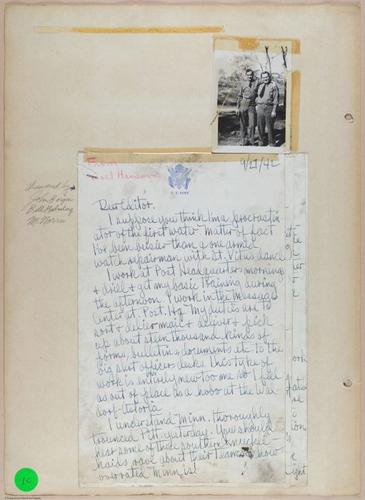 From
Answered by
9/27/42
U.S. ARMY
Dear Editor.
I suppose you think I'm a procrastin
ator of the first water. Matter of fact
I've been busier than a one armed
watch repairman with St. Vitus dance.
I work at Post Headquarters mornings
& drill & get my basic training during
the afternoon. I work in the Message
Center at Post. Hq. My duties are to
sort & deliver mail & deliver & pick
up about steen thousand kinds of
forms, bulletins, documents etc to the
big shot officers desks. This type of
work is entirely new to me so I feel
as out of place as a hobo at the Wal
dorf-Astoria
I understand Minn. thoroughly
trounced Pitt yesterday. You should
hear some of these southern knuckel-
heads rave about their teams & how
overrated Minn is.
10